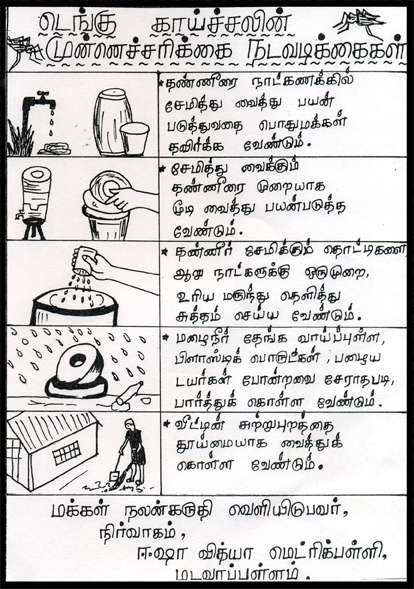 டெங்கு காய்ச்சலின்
முன்னெச்சரிக்கை நடவடிக்கைகள்
* தண்ணீரை நாட்கணக்கில்
சேமித்து வைத்து பயன்
படுத்துவதை பொதுமக்கள்
தவிர்க்க வேண்டும்.
* சேமித்து வைக்கும்
தண்ணீரை முறையாக
மூடி வைத்து பயன்படுத்த
வேண்டும்.
* தண்ணீர் சேமிக்கும் தொட்டிகளை
ஆறு நாட்களுக்கு ஒருமுறை,
உரிய மருந்து தெளித்து
சுத்தம் செய்ய வேண்டும்.
* மழைநீர் தேங்க வாய்ப்புள்ள,
பிளாஸ்டிக் பொருட்கள், பழைய
டயர்கள் போன்றவை சேராதபடி,
பார்த்துக் கொள்ள வேண்டும்.
* வீட்டின் சுற்றுபுறத்தை
தூய்மையாக வைத்துக்
கொள்ள வேண்டும்.
மக்கள் நலன்கருதி வெளியிடுபவர்,
நிர்வாகம்,
ஈஷா வித்யா மெட்ரிக்பள்ளி,
மடவாப்பள்ளம்.